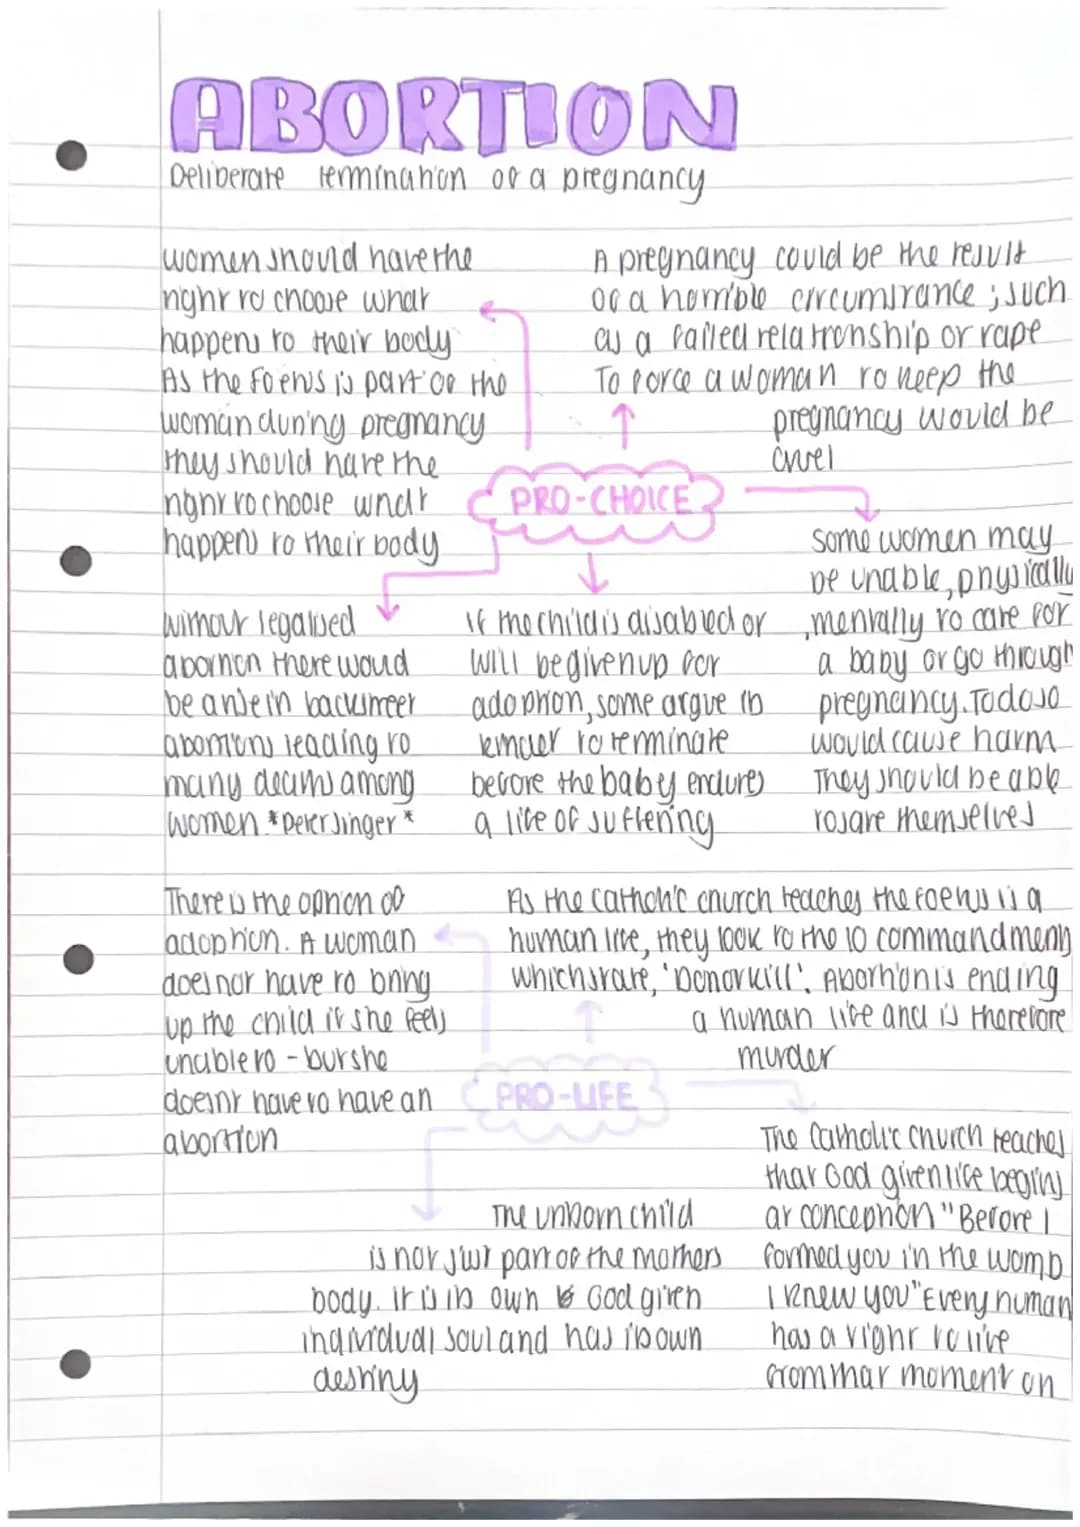 ABORTION
Deliberate termination of a pregnancy
women should have the
right to choose what
happens to their body
As the foetus is part of the
woman during pregnancy
they should have the
right to choose what
happens to their body
A pregnancy could be the result
of a horrible circumstance; such
as a failed relationship or rape
To force a woman to keep the
pregnancy would be
cruel
PRO-CHOICE
Some women may
be unable, physically
, mentally to care for
a baby or go through
pregnancy. To do so
would cause harm
They should be able
to save themselves
without legalised
abortion there woud
be a rise in backstreet
abortions leading to
many deaths among
women *Peter Singer*
If the child is disabled or
will be given up for
adoption, some argue its
kinder to terminate
before the baby endures
a life of suffering
There is the opnion of
adoption. A woman
does not have to bring
up the child if she feels
unable to - but she
doesnt have to have an
abortion
As the Catholic church teaches the foetus is a
human life, they look to the 10 commandments
which state, 'Do not kill'. Abortion is ending
a human life and is therefore
murder
PRO-LIFE
The Catholic Church teaches
that God given life begins
at conception "Before I
formed you in the womb
I knew you" Every human
has a right to live
from that moment on
The unborn child
is not just part of the mothers
body. It is its own God given
individual soul and has its own
destiny